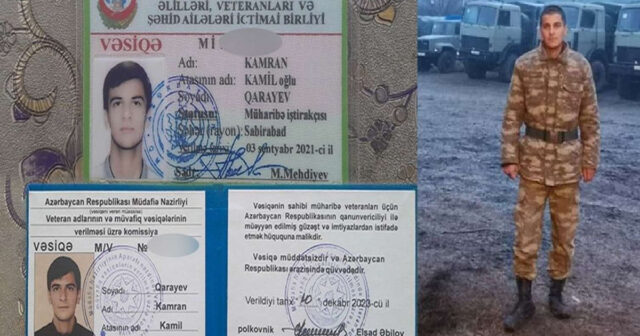 ƏLİLLƏRİ, VETERANLARI VƏ
ŞƏHİD AİLƏLƏRİ İCTİMAİ BİRLİYİ
VƏSİQƏ
Adı: KAMRAN
Atasının adı: KAMİL oğlu
Soyadı: QARAYEV
Statusu: Müharibə iştirakçısı
(rayon): Sabirabad
03 sentyabr 2021-ci il
Sədr M.Mehdiyev
Azərbaycan Respublikası Müdafiə Nazirliyi
Veteran adlarının və müvafiq vəsiqələrinin
verilməsi üzrə komissiya
VƏSİQƏ M/V №
Soyadı Qarayev
Adı Kamran
Atasının adı Kamil
Vəsiqənin sahibi müharibə veteranları üçün
Azərbaycan Respublikasının qanunvericiliyi ilə
müəyyən edilmiş güzəşt və imtiyazlardan istifadə
etmək hüququna malikdir.
Vəsiqə müddətsizdir və Azərbaycan
Respublikası ərazisində qüvvədədir.
Verildiyi tarix 10 dekabr 2023-cü il
polkovnik Elşad Əbilov